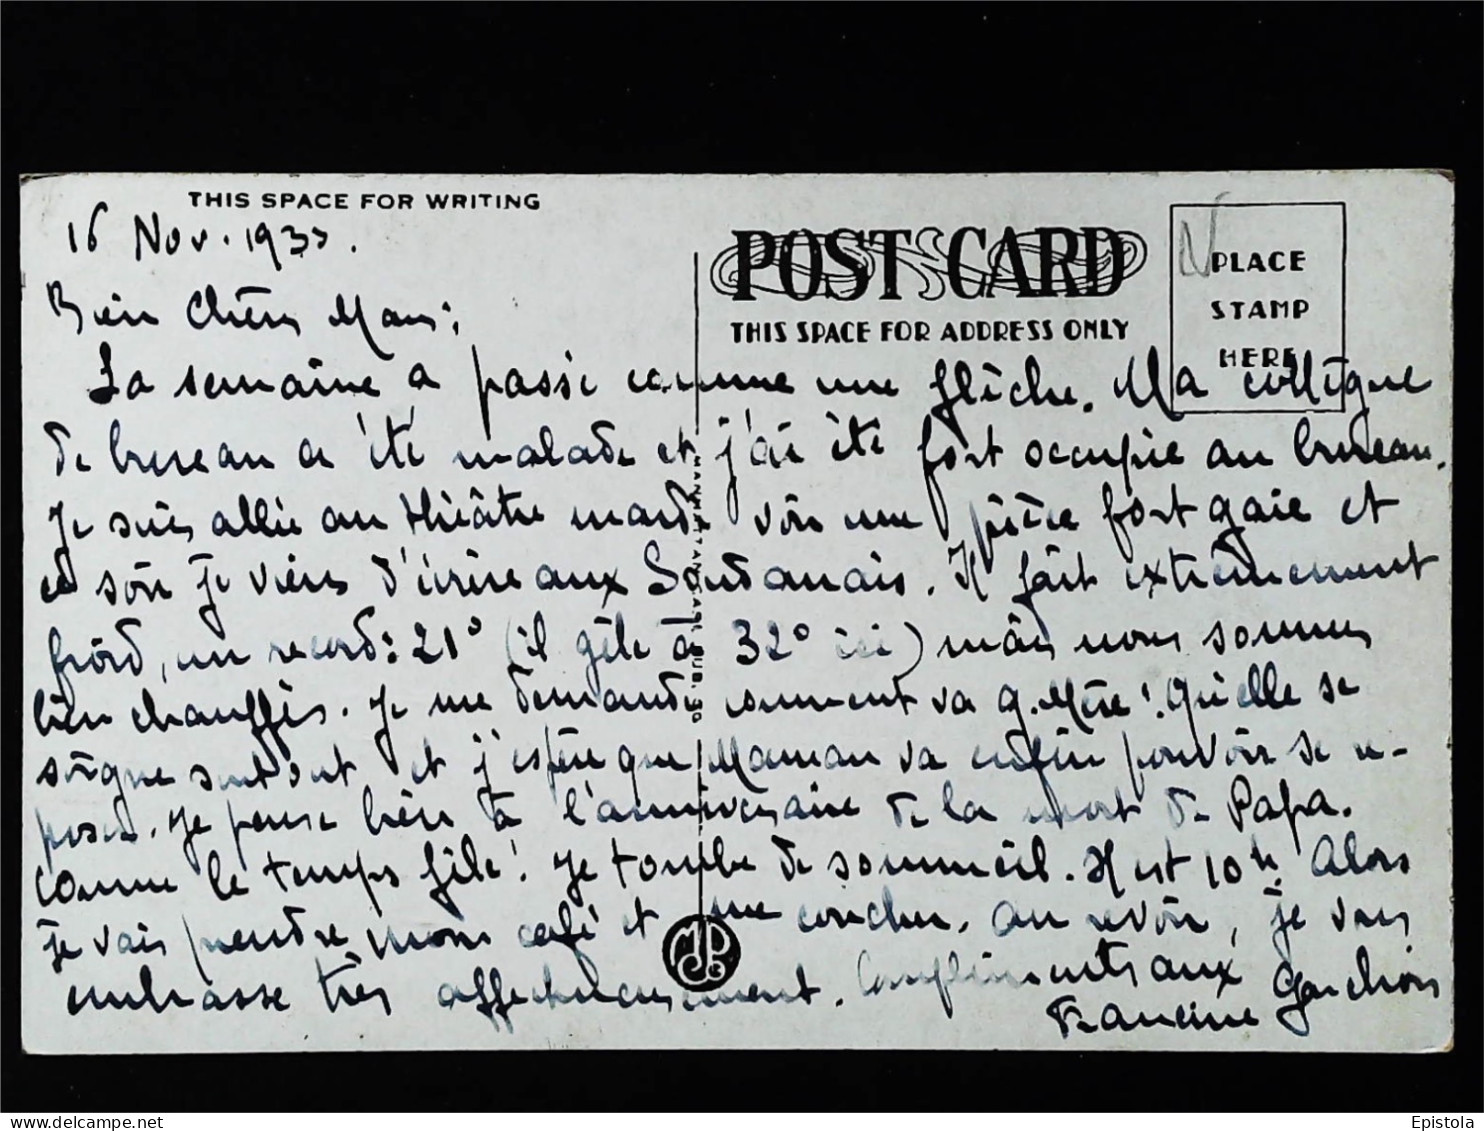 THIS SPACE FOR WRITING
16 Nov. 1933.
POST CARD
THIS SPACE FOR ADDRESS ONLY
PLACE
STAMP
HERE
N
Bien Chère
La semaine a passé comme une flèche. Ma collègue
de bureau a été malade et j'ai été fort occupée au bureau.
Je suis allée au théâtre mardi voir une pièce fort gaie et
ce soir je viens d'écrire aux Soudanais. Il fait extrêmement
froid, un record: 21° (il gèle à 32° ici) mais nous sommes
bien chauffés. Je me demande comment va G. Mère! Qu'elle se
soigne surtout et j'espère que Maman va enfin pouvoir se re-
poser. Je pense bien à l'anniversaire de la mort de Papa.
Comme le temps file! Je tombe de sommeil. Il est 10 h. Alors
je vais prendre mon café et me coucher. Au revoir, je vous
embrasse très affectueusement. Compliments aux
Francine
MANHATTAN CARD PUB. CO
MCP Co
delcampe.net
Epistola